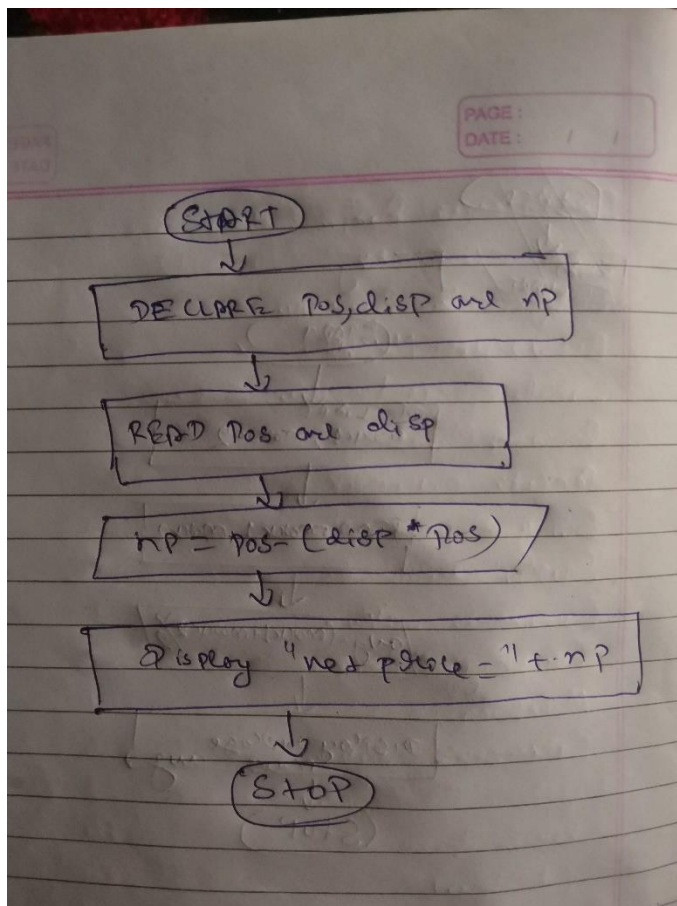 PAGE:
DATE: / /
START
DECLARE Pos, disp and np
READ Pos and disp
np = pos - (disp * Pos)
Display "net price = " + np
STOP